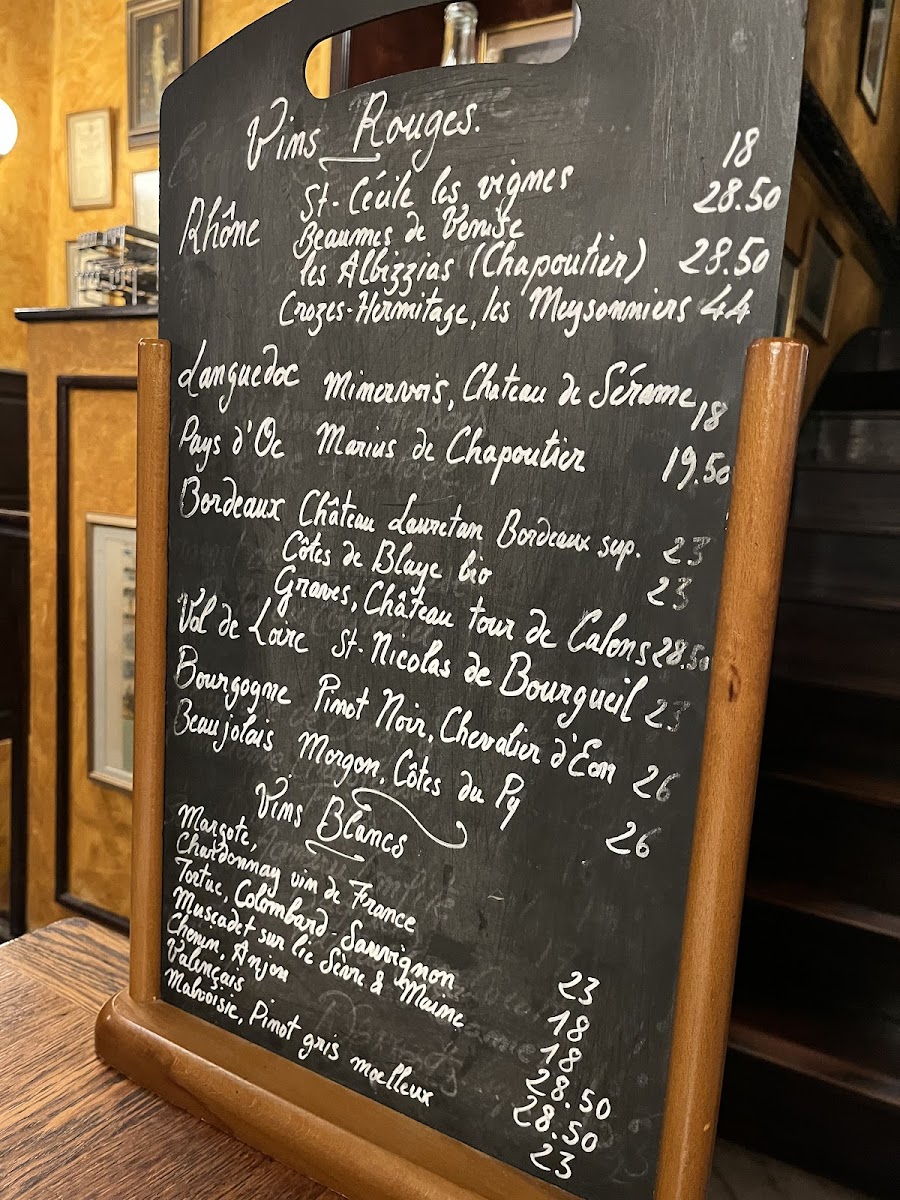 Vins Rouges.
Rhône St-Cécile les vignes 18
Beaumes de Venise 28.50
les Albizzias (Chapoutier) 28.50
Crozes-Hermitage, les Meysonniers 44
Languedoc Minervois, Chateau de Sérame 18
Pays d'Oc Marius de Chapoutier 19.50
Bordeaux Château Lauretan Bordeaux sup. 23
Côtes de Blaye bio 23
Graves, Château tour de Calens 28.50
Val de Loire St-Nicolas de Bourgueil 23
Bourgogne Pinot Noir, Chevalier d'Eon 26
Beaujolais Morgon, Côtes du Py 26
Vins Blancs
Margote,
Chardonnay vin de France 23
Tortue, Colombard-Sauvignon 18
Muscadet sur lie Sèvre & Maine 18
Chenin, Anjou 28.50
Valençais 28.50
Malvoisie, Pinot gris moelleux 23